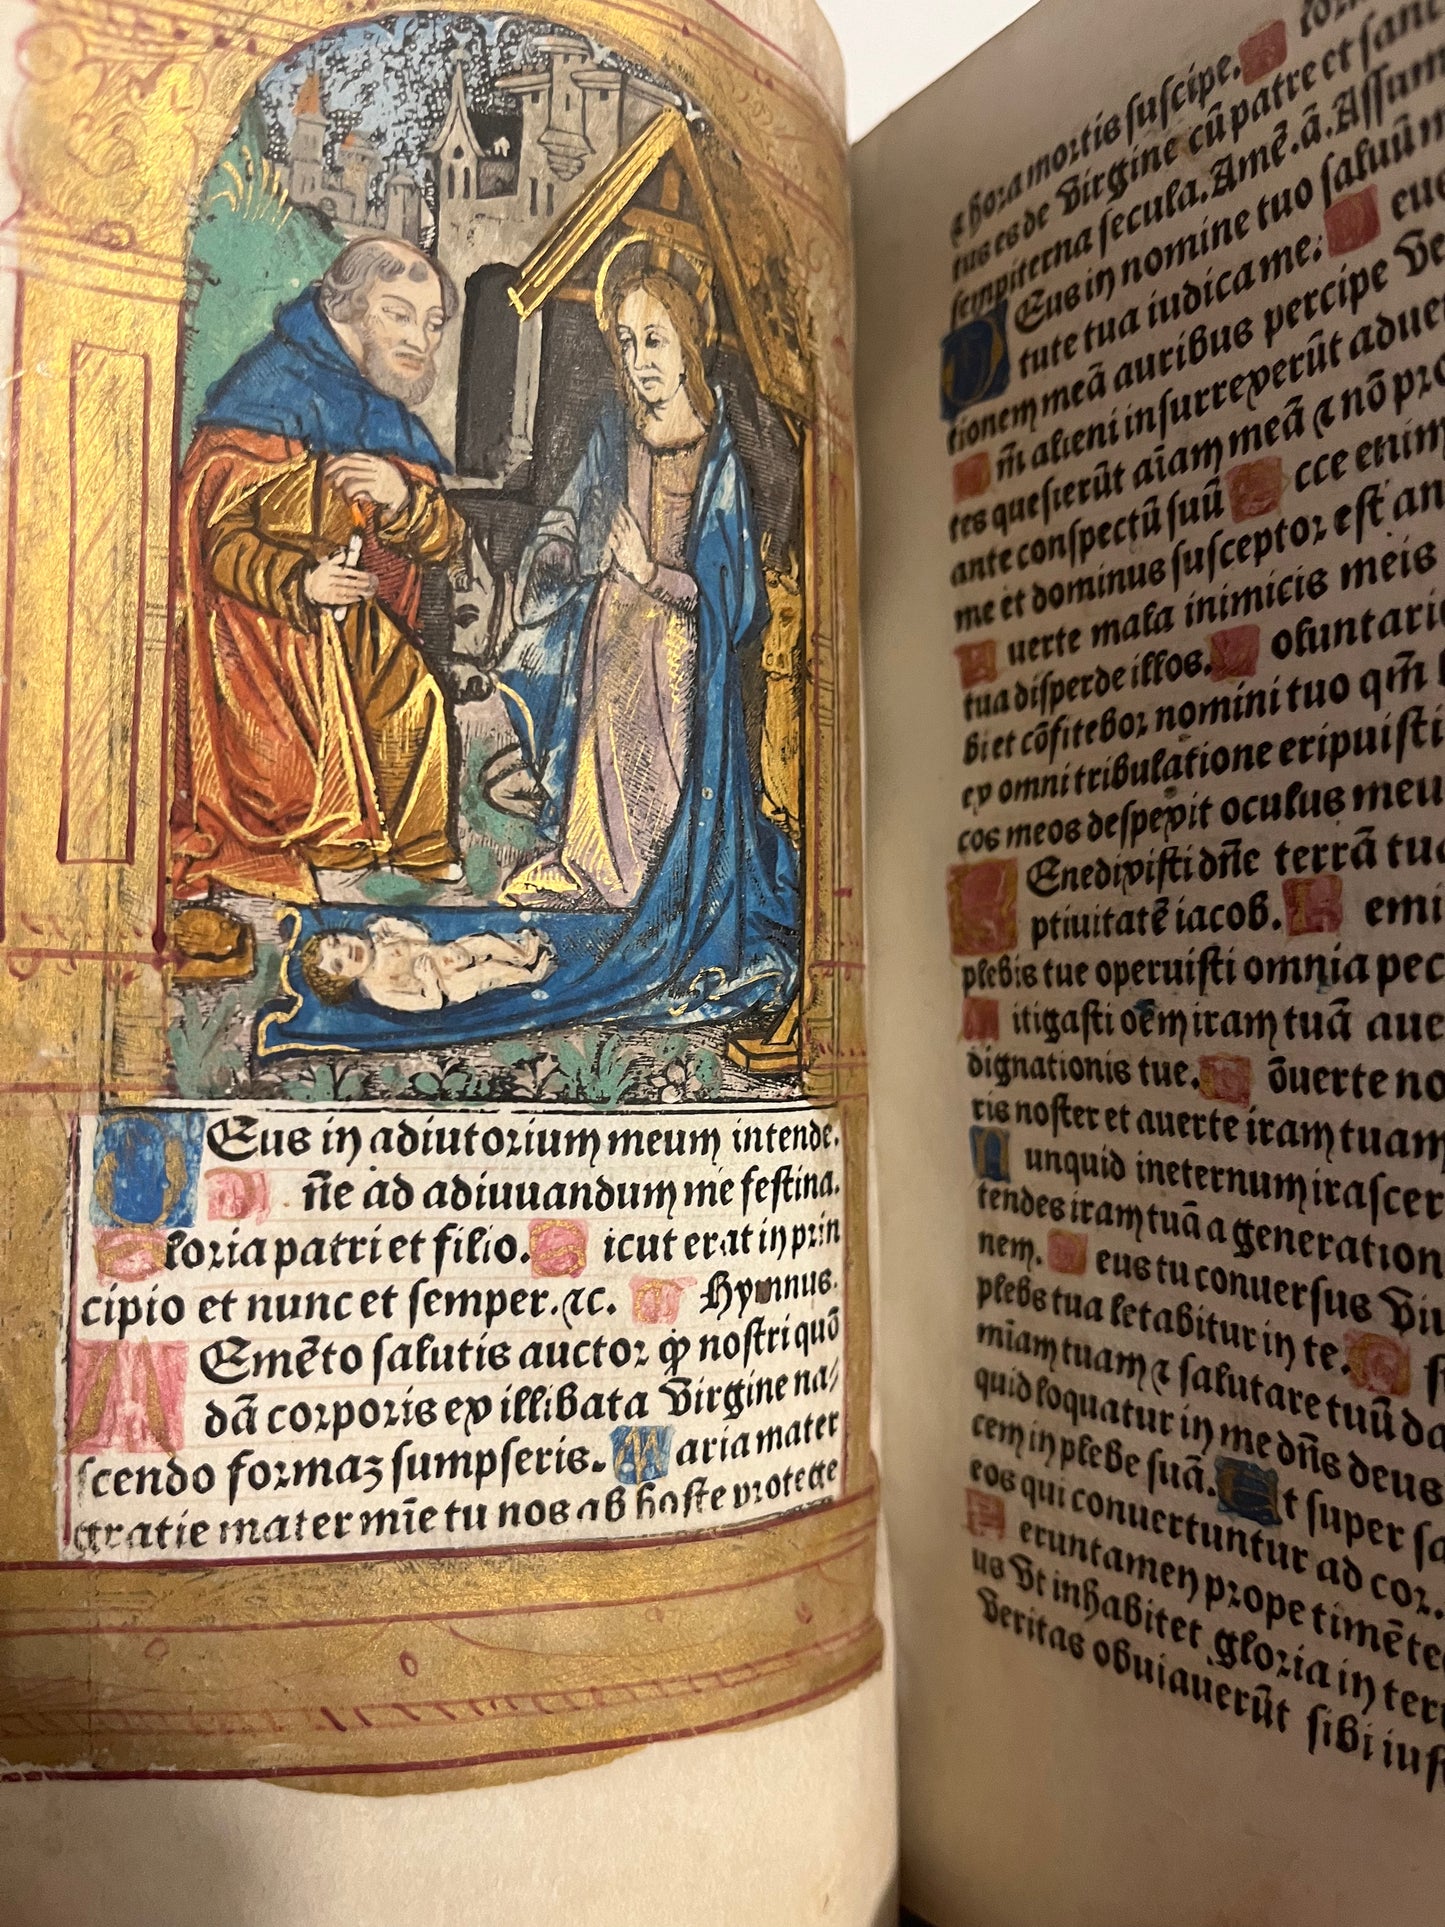 Deus in adiutorium meum intende.
D n̄e ad adiuuandum me festina.
Gloria patri et filio. S icut erat in prin
cipio et nunc et semper. ⁊c. Hymnus.
MEmēto salutis auctor ꝙ nostri quō
dā corporis ex illibata Virgine na⸗
scendo formaꝫ sumpseris. Maria mater
gratie mater mīe tu nos ab hoste protege
⁊ hora mortis suscipe.
tus es de Virgine cū patre et sanc
sempiterna secula. Amē. ā. Assum
DEus in nomine tuo saluū m
tute tua iudica me:
tionem meā auribus percipe Ve
m̄ alieni insurrexerūt aduer
tes quesierūt aīam meā ⁊ nō pro
ante conspectū suū E cce enim
me et dominus susceptor est an
A uerte mala inimicis meis
tua disperde illos. V oluntarie
bi et cōfitebor nomini tuo qm̄
ex omni tribulatione eripuisti
cos meos despexit oculus meu
BEnedixisti dn̄e terrā tuā
ptiuitatē iacob. R emi
plebis tue operuisti omnia pec
M itigasti oēm iram tuā aue
dignationis tue. C ōuerte no
ris noster et auerte iram tuam
N unquid ineternum irascer
tendes iram tuā a generation
nem. D eus tu conuersus Viu
plebs tua letabitur in te.
mīam tuam ⁊ salutare tuū da
quid loquatur in me dn̄s deus
cem in plebe suā. Et super sa
eos qui conuertuntur ad cor.
V eruntamen prope timēte
us Vt inhabitet gloria in terr
Veritas obuiauerūt sibi iust